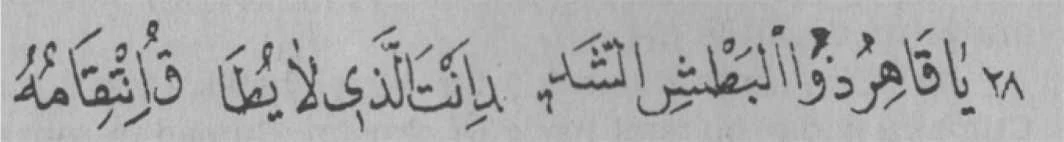 ٢٨ يَا قَاهِرُ ذُو الْبَطْشِ الشَّدِيدِ اَنْتَ الَّذِي لَا يُطَاقُ اِنْتِقَامُهُ